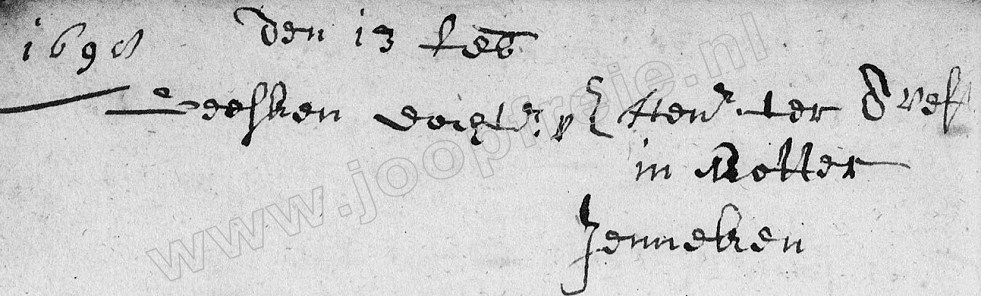 1698 den 13 feb
Geesken dochter Otten ter
in Notter
Jenneken
www.joopfreije.nl